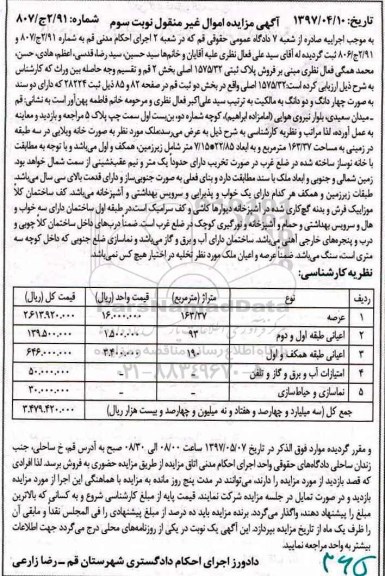 تاریخ: ۱۳۹۷/۰۴/۱۰ آگهی مزایده اموال غیر منقول نوبت سوم شماره: ۲/۹۱ج/۸۰۷
به موجب اجراییه صادره از شعبه ۷ دادگاه عمومی حقوقی قم که در شعبه ۲ اجرای احکام مدنی قم به شماره ۲/۹۱ج/۸۰۷ و
۲/۹۱ج/۸۰۶ ثبت گردیده له آقای سید علی فعال نظری علیه آقایان و خانم‌ها سید حسین، سید رضا قدسی، اعظم، هادی، حسن،
محمد همگی فعال نظری مبنی بر فروش پلاک ثبتی ۱۵۷۵/۳۲ اصلی بخش ۲ قم و تقسیم وجه حاصله بین وراث که کارشناس
به شرح ذیل ارزیابی کرده است: ۱۵۷۵/۳۲ اصلی واقع در بخش دو ثبت قم در صفحه ۸۲ و ۸۵ ذیل ثبت ۲۸۲۲۴ که دارای دو سند
به صورت چهار دانگ و دو دانگ به مالکیت به ترتیب سید علی‌اکبر فعال نظری و مرحومه خانم فاطمه پهن‌آور است به نشانی: قم
ـ میدان سعیدی، بلوار نیروی هوایی (امامزاده ابراهیم)، کوچه شماره دو، بن‌بست اول سمت چپ پلاک ۵ مراجعه و بازدید و معاینه
به عمل آورده، لذا مراتب و نظریه کارشناسی به شرح ذیل به عرض می‌رسد: ملک مورد نظر به صورت خانه ویلایی در سه طبقه
در زمینی به مساحت ۱۶۳/۳۷ مترمربع و به ابعاد ۷/۱۵×۲۲/۸۵ متر شامل زیرزمین، همکف و اول می‌باشد و با توجه به مطابقت
با خانه نوساز ساخته شده در ضلع غرب در صورت تخریب دارای حدوداً یک متر و نیم عقب‌نشینی از سمت شمال خواهد بود.
زمین شمالی و جنوبی و ابعاد ملک با سند مطابقت دارد و بنای فعلی به صورت جنوبی‌ساز و دارای قدمت بالای سی سال می‌باشد.
طبقات زیرزمین و همکف هر کدام دارای یک خواب و پذیرایی و سرویس بهداشتی و آشپزخانه می‌باشد. کف ساختمان کلاً
موزاییک فرش و بدنه گچ‌کاری شده در آشپزخانه دیوارها کاشی و کف سرامیک است. در طبقه اول ساختمان دارای سه خواب و
هال و سرویس بهداشتی و حمام و آشپزخانه و نورگیری کوچک در ضلع غرب است ضمناً درب‌های داخل ساختمان کلاً چوبی و
درب و پنجره‌های خارجی آهنی می‌باشد. ساختمان دارای آب و برق و گاز می‌باشد و نماسازی ضلع جنوبی که داخل کوچه سه
متری است، سنگ می‌باشد. ضمناً عرصه و اعیان ملک مورد نظر تخلیه در اختیار هیچ کس نمی‌باشد.
نظریه کارشناسی:
ردیف نوع متراژ (مترمربع) قیمت واحد (ریال) قیمت کل (ریال)
۱ عرصه ۱۶۳/۳۷ ۱۶.۰۰۰.۰۰۰ ۲.۶۱۳.۹۲۰.۰۰۰
۲ اعیانی طبقه اول و دوم ۹۳ ۱.۵۰۰.۰۰۰ ۱۳۹.۵۰۰.۰۰۰
۳ اعیانی طبقه همکف و اول ۱۹۰ ۳.۴۰۰.۰۰۰ ۶۴۶.۰۰۰.۰۰۰
۴ امتیازات آب و برق و گاز و تلفن ۵۰.۰۰۰.۰۰۰
۵ نماسازی و حیاط‌سازی ۳۰.۰۰۰.۰۰۰
جمع کل (سه میلیارد و چهارصد و هفتاد و نه میلیون و چهارصد و بیست هزار ریال) ۳.۴۷۹.۴۲۰.۰۰۰
و مقرر گردیده موارد فوق الذکر در تاریخ ۱۳۹۷/۰۵/۰۷ ساعت ۰۸/۰۰ الی ۰۸/۳۰ صبح به آدرس قم، خ ساحلی، جنب
زندان ساحلی دادگاه‌های حقوقی واحد اجرای احکام مدنی اتاق مزایده از طریق مزایده حضوری به فروش برسد. لذا افرادی
که قصد بازدید از مورد مزایده را دارند، می‌توانند در مدت پنج روز مانده به مزایده با هماهنگی این اجرا از مورد مزایده
بازدید و در صورت تمایل در جلسه مزایده شرکت نمایند. قیمت پایه از مبلغ کارشناسی شروع و به کسانی که بالاترین
مبلغ را پیشنهاد دهند، واگذار می‌گردد. برنده مزایده باید ده درصد از مبلغ پیشنهادی را فی المجلس نقداً و مابقی آن
را ظرف یک ماه از تاریخ مزایده بپردازد. این آگهی یک نوبت در یکی از روزنامه‌های محلی درج می‌گردد جهت اطلاعات
بیشتر به واحد مراجعه نمایید.
دادورز اجرای احکام دادگستری شهرستان قم ـ رضا زارعی